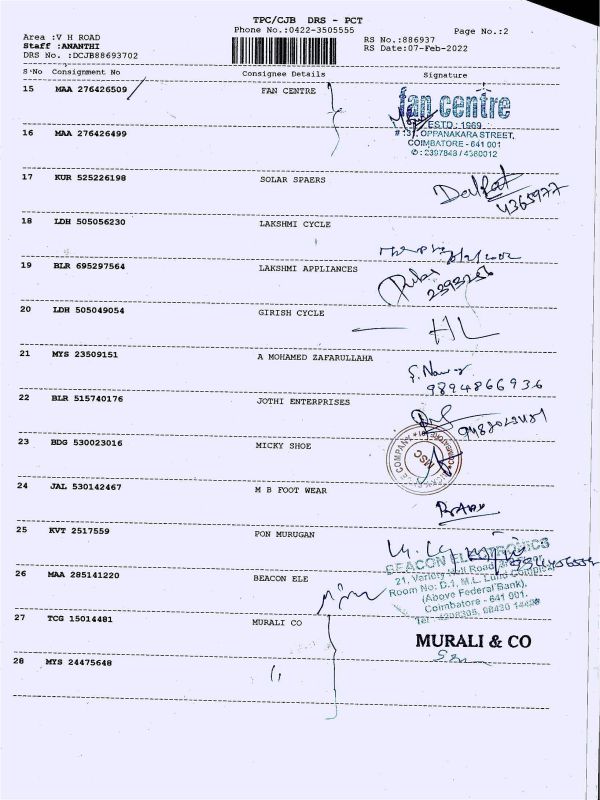 TPC/CJB DRS - PCT
Phone No.:0422-3505555
Page No.:2
Area :V H ROAD
Staff :ANANTHI
DRS No. :DCJB88693702
RS No.:886937
RS Date:07-Feb-2022
S'No Consignment No Consignee Details Signature
15 MAA 276426509 FAN CENTRE
fan centre
ESTD : 1969
# 131, OPPANAKARA STREET,
COIMBATORE - 641 001
✆ : 2397848 / 4380012
16 MAA 276426499
17 KUR 525226198 SOLAR SPAERS
4365977
18 LDH 505056230 LAKSHMI CYCLE
19 BLR 695297564 LAKSHMI APPLIANCES
20 LDH 505049054 GIRISH CYCLE
HL
21 MYS 23509151 A MOHAMED ZAFARULLAHA
9894866936
22 BLR 515740176 JOTHI ENTERPRISES
23 BDG 530023016 MICKY SHOE
MSC
24 JAL 530142467 M B FOOT WEAR
25 KVT 2517559 PON MURUGAN
26 MAA 285141220 BEACON ELE
BEACON ELECTRONICS
21, Variety Hall Road,
Room No: D.1, M.L. Lund Complex
(Above Federal Bank),
Coimbatore - 641 001.
27 TCG 15014481 MURALI CO
MURALI & CO
28 MYS 24475648